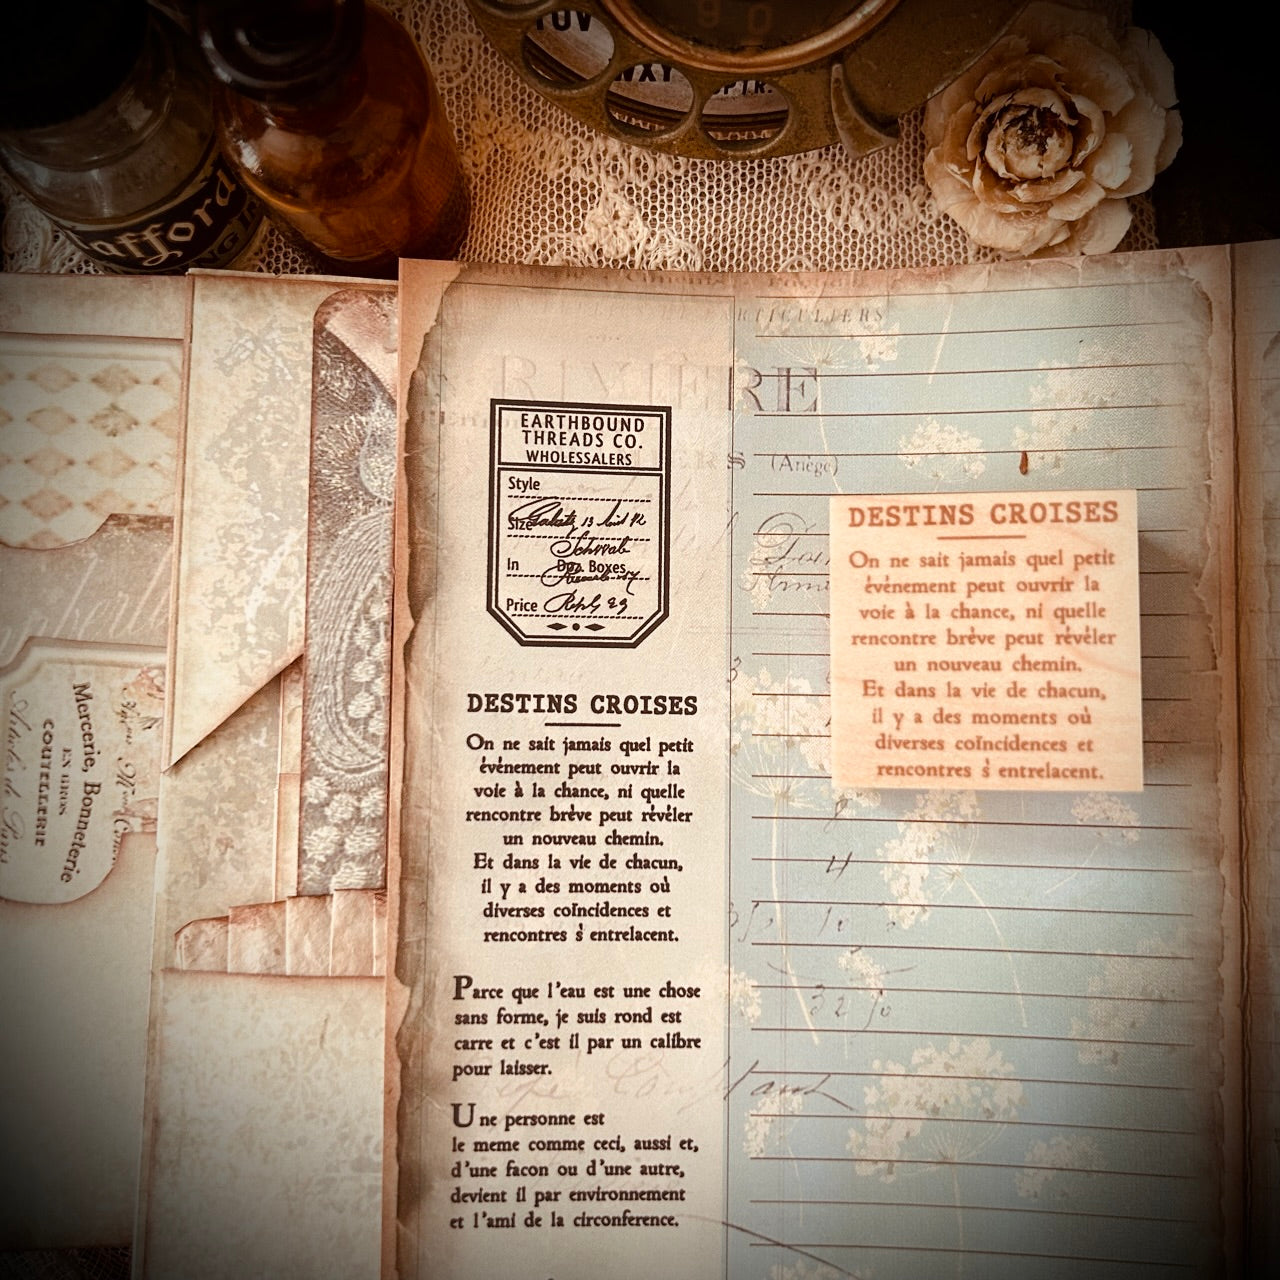 TUV
WXY
afford
ARTICULIERS
RIVIÈRE
(Ariège)
EARTHBOUND
THREADS CO.
WHOLESSALERS
Style
Size
In Doz. Boxes
Price
DESTINS CROISES
On ne sait jamais quel petit
événement peut ouvrir la
voie à la chance, ni quelle
rencontre brève peut révéler
un nouveau chemin.
Et dans la vie de chacun,
il y a des moments où
diverses coïncidences et
rencontres s' entrelacent.
Parce que l'eau est une chose
sans forme, je suis rond est
carre et c'est il par un calibre
pour laisser.
Une personne est
le meme comme ceci, aussi et,
d'une facon ou d'une autre,
devient il par environnement
et l'ami de la circonference.
DESTINS CROISES
On ne sait jamais quel petit
événement peut ouvrir la
voie à la chance, ni quelle
rencontre brève peut révéler
un nouveau chemin.
Et dans la vie de chacun,
il y a des moments où
diverses coïncidences et
rencontres s' entrelacent.
Mercerie, Bonneterie
EN GROS
COUTELLERIE
Articles de Paris